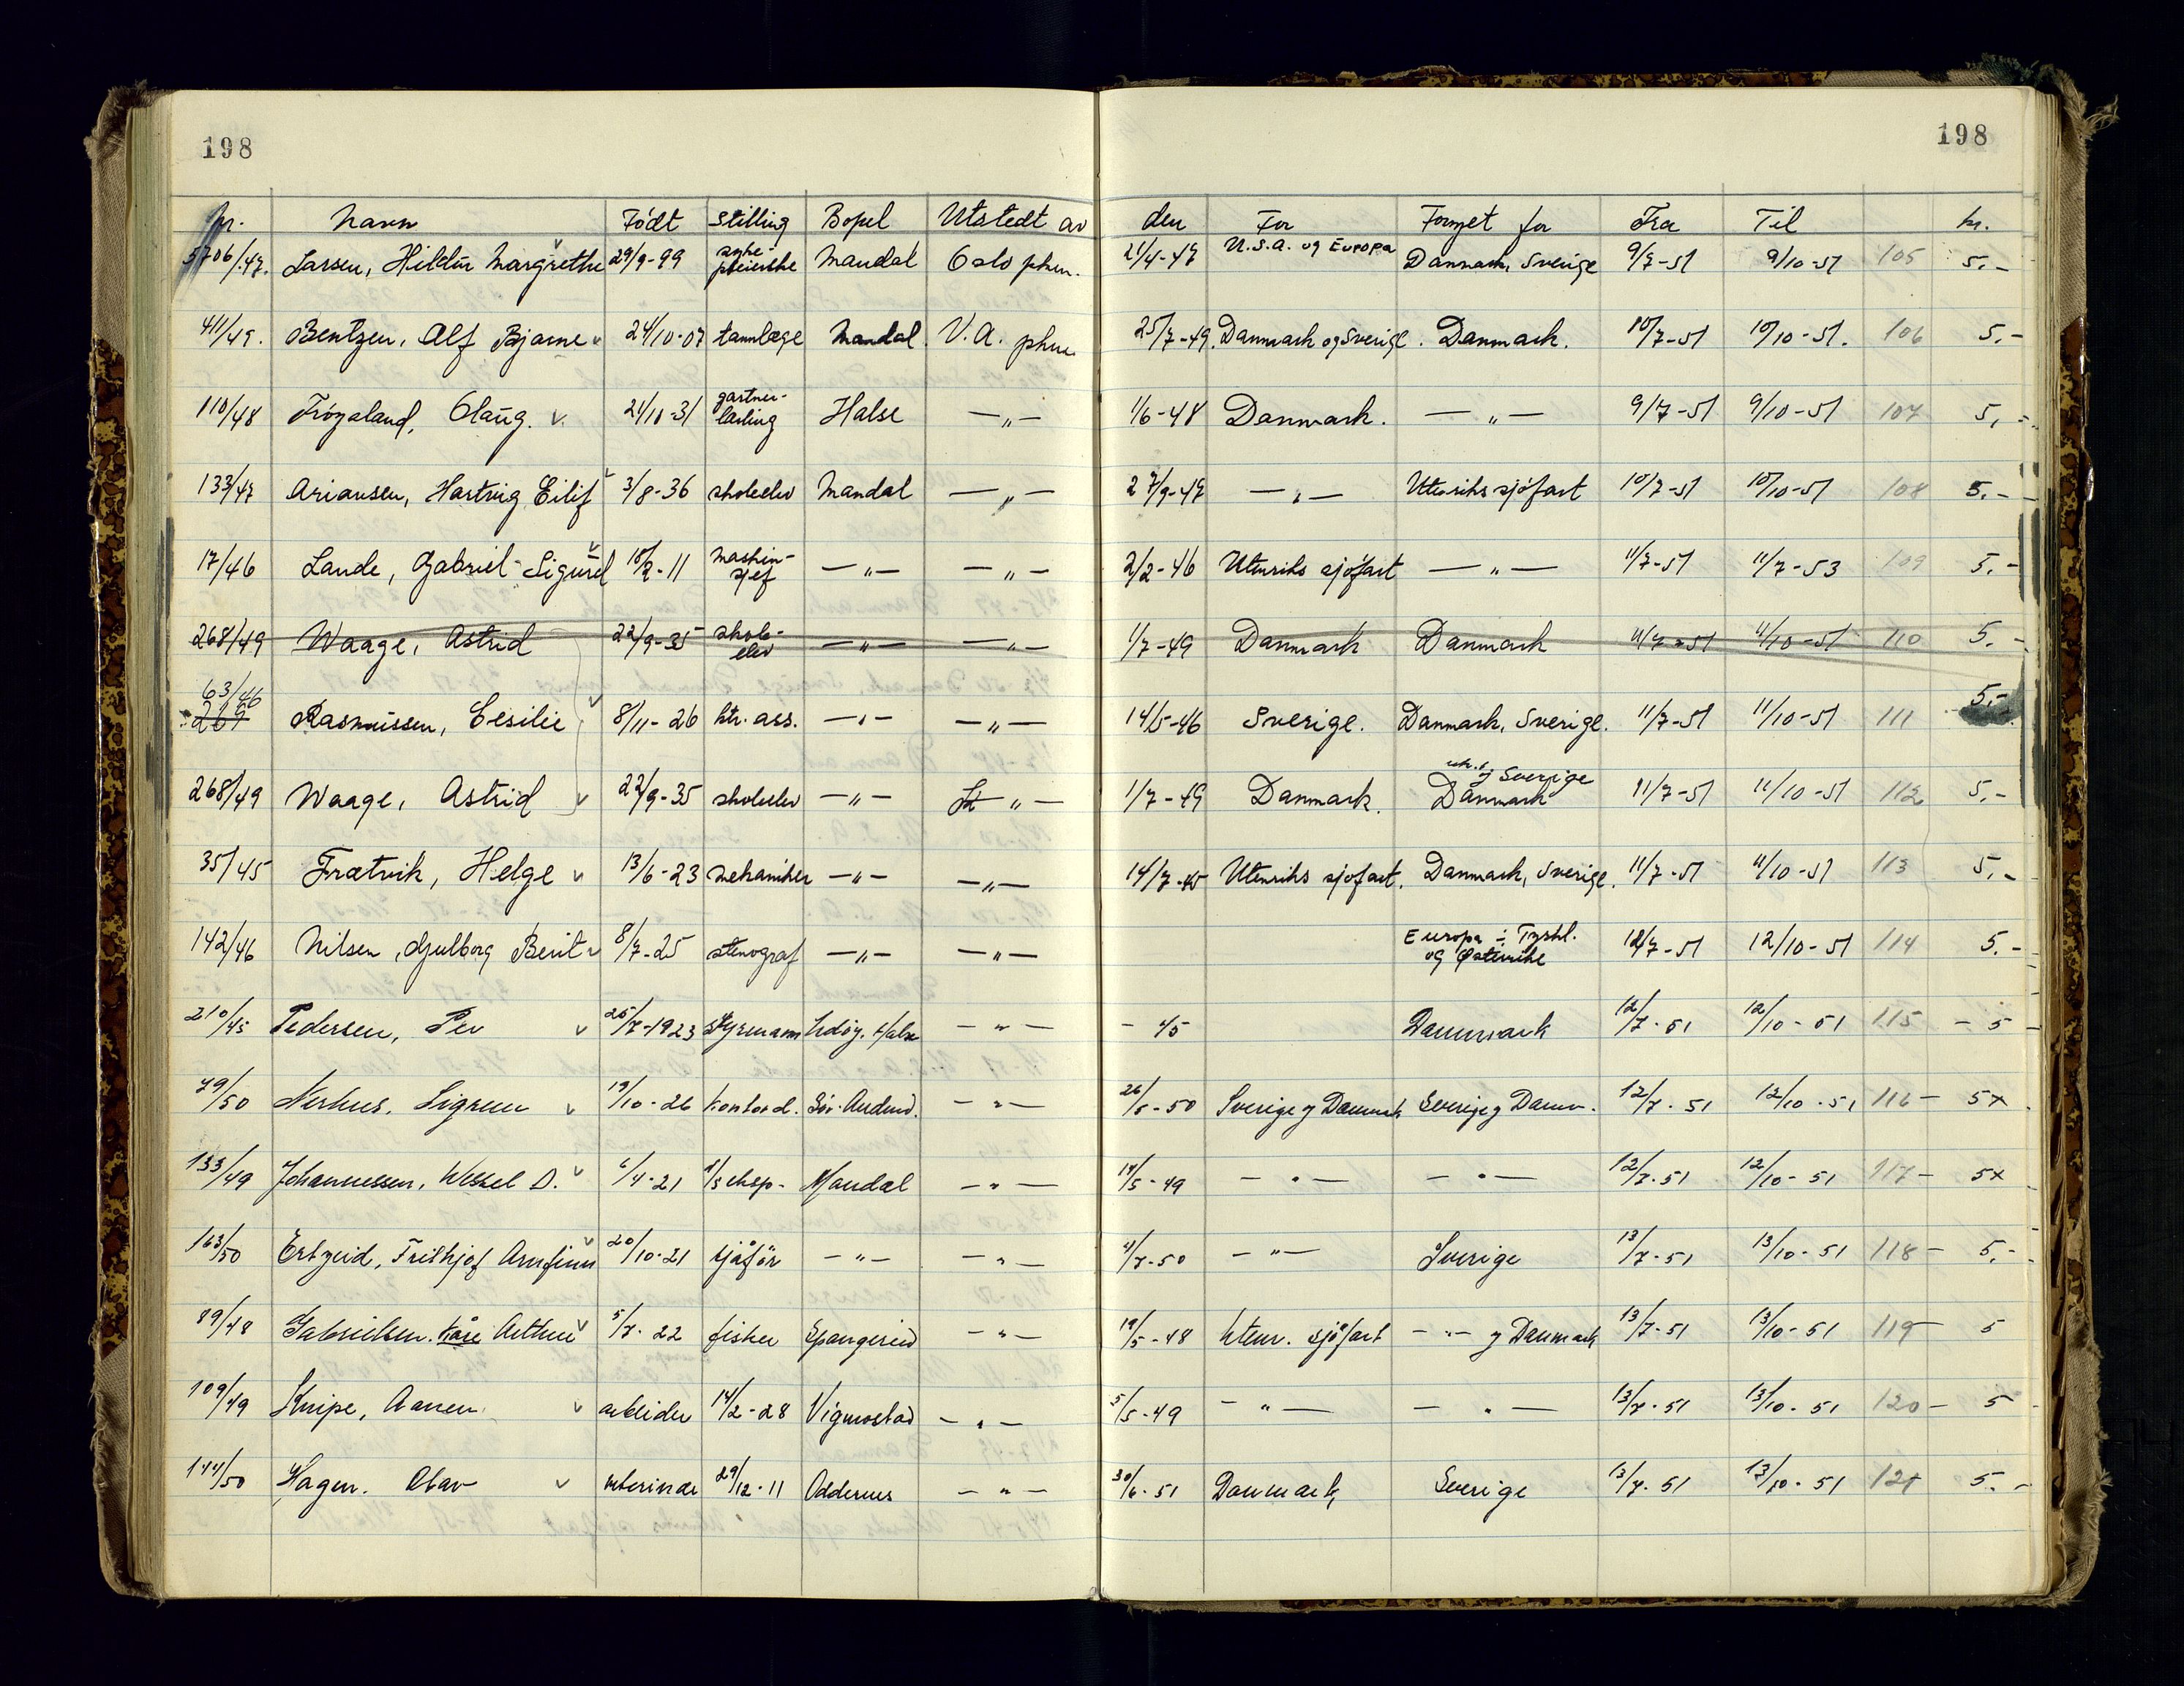 198
198
Nr. Navn Født Stilling Bopel Utstedt av den For Fornyet for Fra Til kr.
5706/47. Larsen, Hildur Margrethe v 29/9-99 syke-pleierske Mandal Oslo pkm. 21/4-47 U.S.A. og Europa Danmark, Sverige 9/7-51 9/10-51 105 5.-
411/49. Bentzen, Alf Bjarne v 24/10-07 tannlæge Mandal V.A. pkm. 25/7-49. Danmark og Sverige. Danmark. 10/7-51 10/10-51. 106 5.-
110/48 Frøysland, Olaug. v. 21/10-31 gartner-lærling Halse —„— 1/6-48 Danmark. —„— 9/7-51 9/10-51 107 5,-
133/47 Ariansen, Hartvig Eilif v 3/8-36 skoleelev Mandal —„— 27/9-47 —„— Utenriks sjöfart 10/7-51 10/10-51 108 5.-
17/46 Lande, Gabriel Sigurd v 18/2-11 maskin-sjef —„— —„— 2/2-46 Utenriks sjöfart —„— 11/7-51 11/7-53 109 5.-
268/49 Waage, Astrid 22/9-35 skole-elev —„— —„— 1/7-49 Danmark Danmark 11/7-51 11/10-51 110 5.-
63/46 269 Rasmussen, Cesilie v 8/11-26 ktr. ass. —„— —„— 14/5-46 Sverige. Danmark, Sverige. 11/7-51 11/10-51 111 5.-
268/49 Waage, Astrid v 22/9-35 skoleelev —„— —„— 1/7-49 Danmark. Danmark og Sverige 11/7-51 11/10-51 112 5.-
35/45 Frætvik, Helge v 13/6-23 mekaniker —„— —„— 14/7-45 Utenriks sjöfart. Danmark, Sverige. 11/7-51 11/10-51 113 5.-
142/46 Nilsen, Gjulborg Berit v 8/7-25 stenograf —„— —„— Europa ÷ Tyskl. og Østerrike 12/7-51 12/10-51 114 5.-
210/45 Pedersen, Per v 25/7-1923 Styrmann Udøy. Halse —„— - 45 Danmark 12/7-51 12/10-51 115 - 5 -
79/50 Nerhus. Sigrun v 19/10-26 Kontord. Sör-Audned. —„— 26/5-50 Sverige og Danmark Sverige og Danm. 12/7-51 12/10-51 116 - 5x
133/49 Johannessen, Wessel D. v 6/4-21 Mandal —„— 19/5-49 —„— —„— 12/7-51 12/10-51 117 - 5x
163/50 Ertzeid, Frithjof Arnfinn v 20/10-21 sjåför —„— —„— 4/7-50 —„— Sverige 13/7-51 13/10-51 118 - 5.-
89/48 Gabrielsen. Kåre Arthur v 5/7-22 fisker Spangereid —„— 19/5-48 Utenr. sjöfart —„— og Danmark 13/7-51 13/10-51 119 - 5
109/49 Knipe, Aanen v arbeider 14/2-28 Vigmostad —„— 5/5-49 —„— —„— 13/7-51 13/10-51 120 - 5
144/50 Hagen. Olav v veterinær 29/12-11 Oddernes —„— 30/6-51 Danmark Sverige 13/7-51 13/10-51 121 5.-